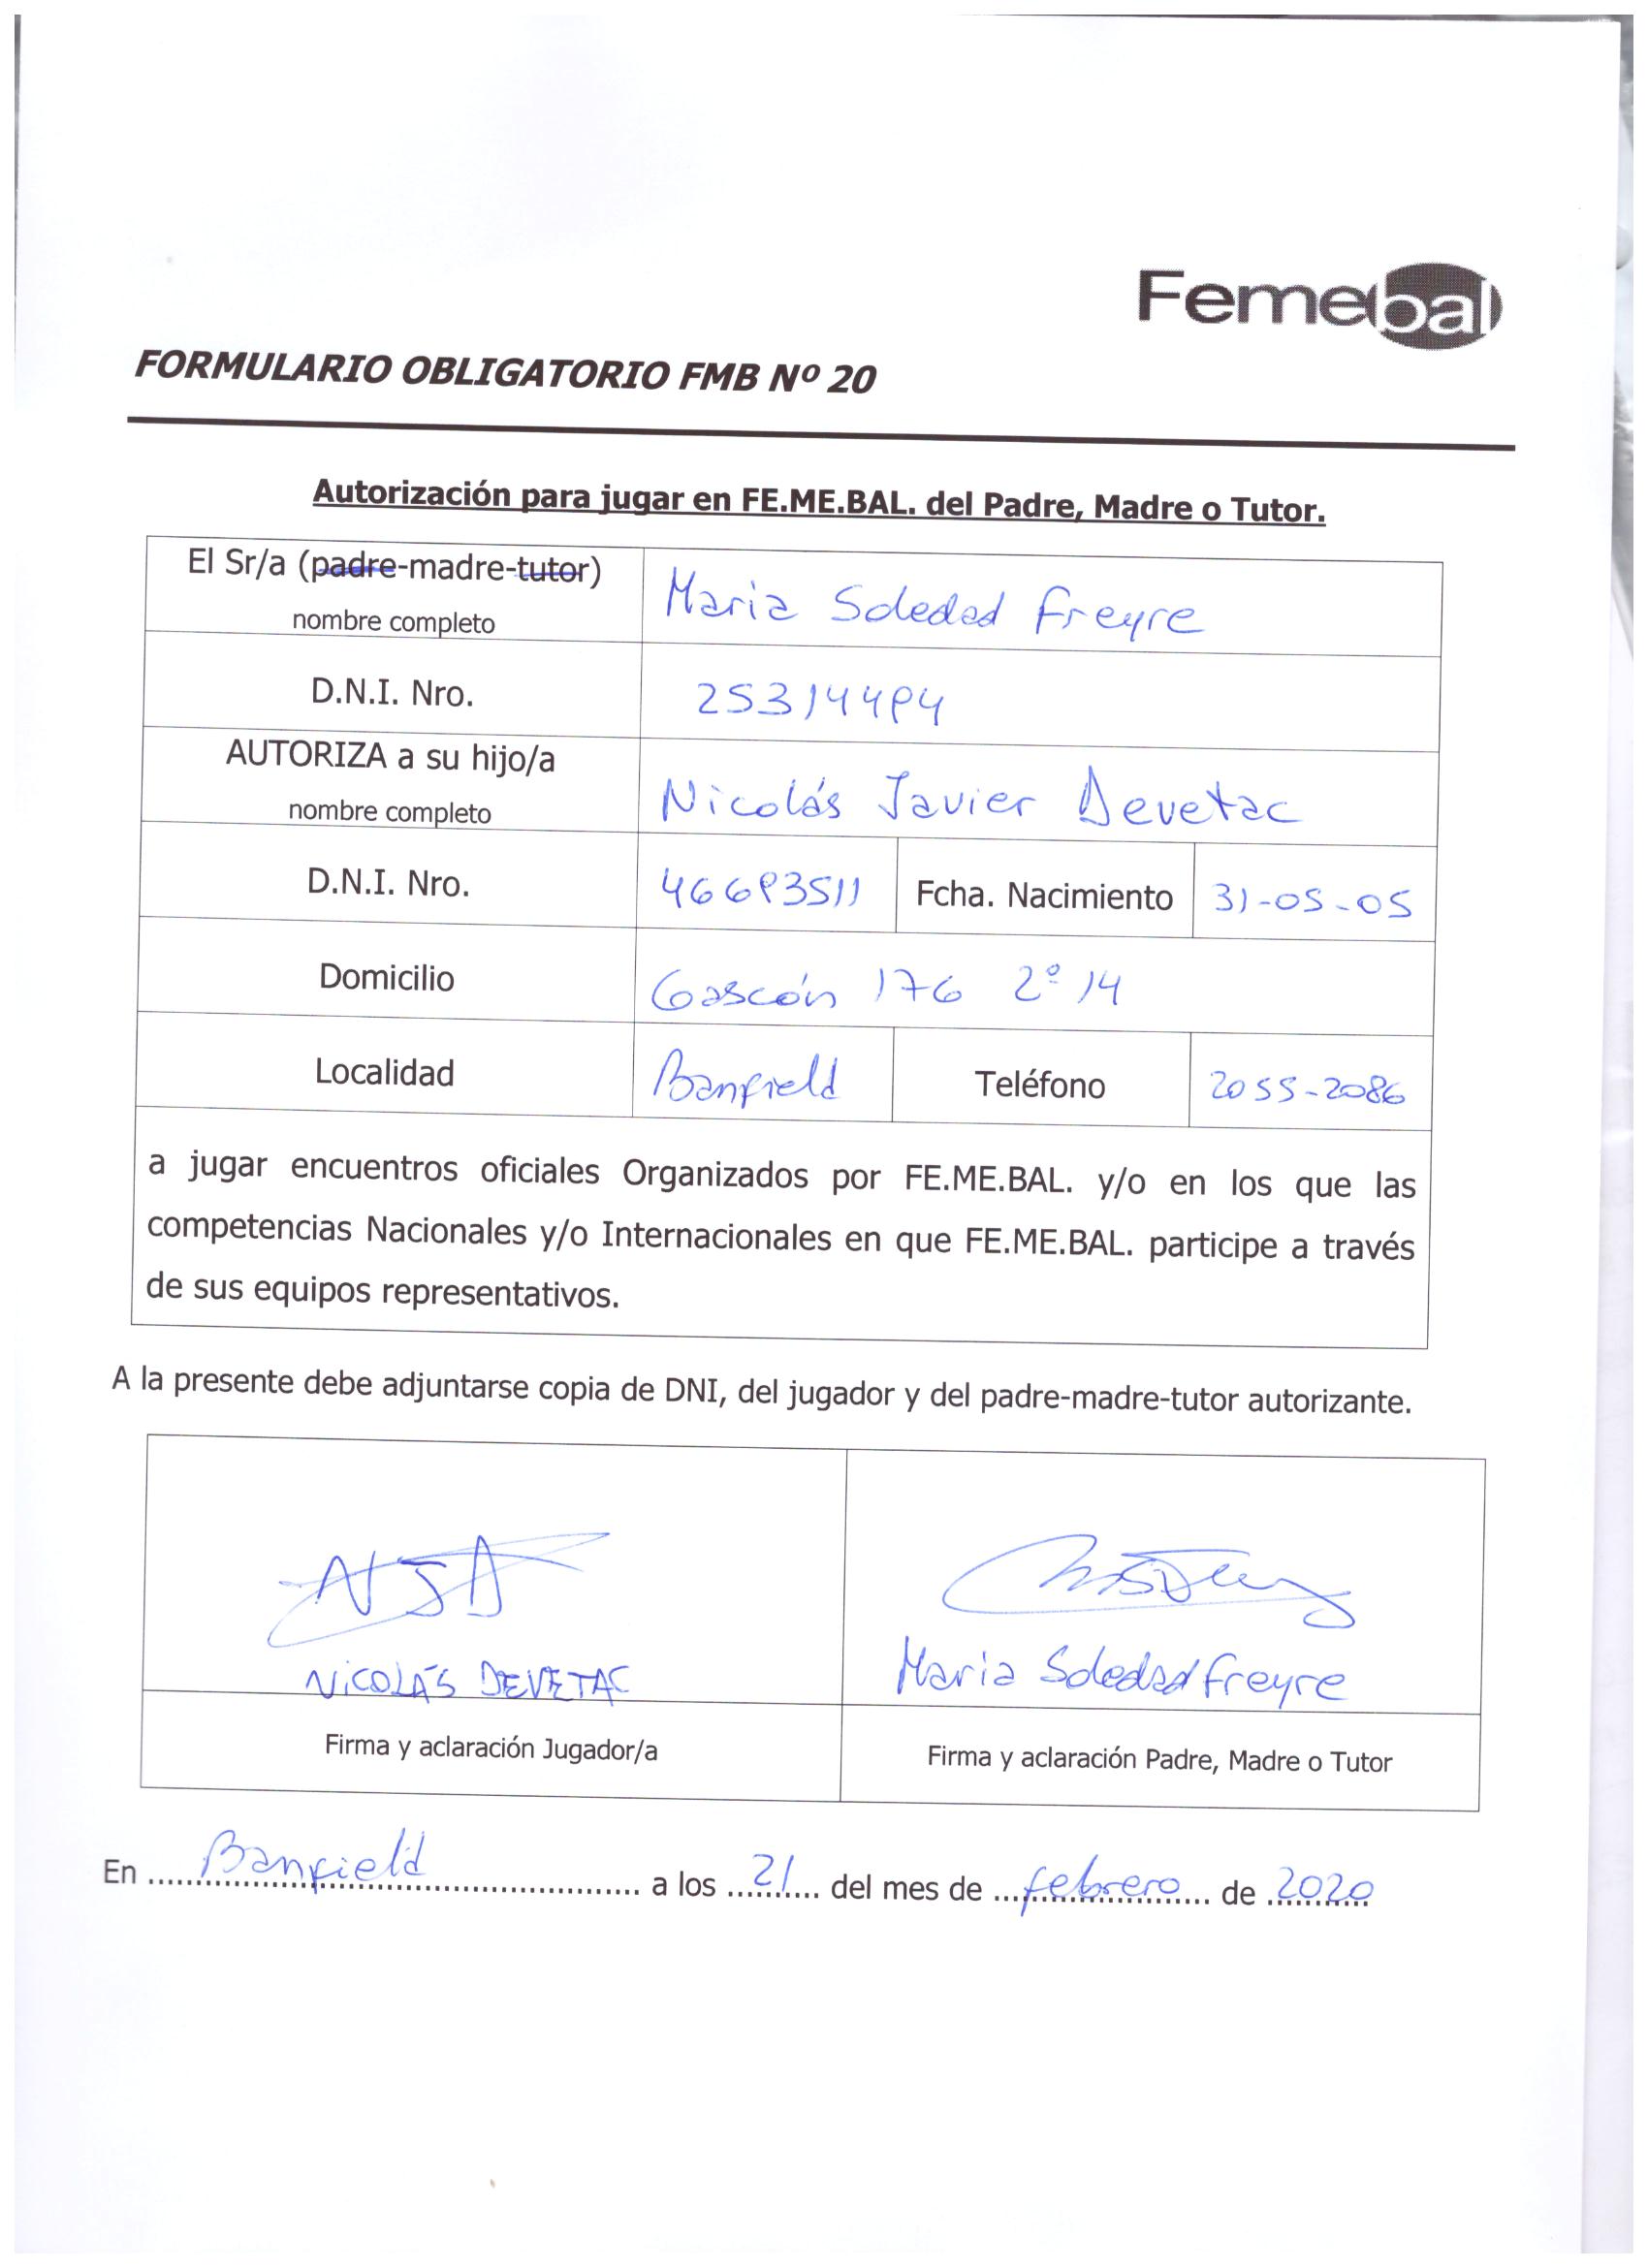 Femebal
FORMULARIO OBLIGATORIO FMB Nº 20
Autorización para jugar en FE.ME.BAL. del Padre, Madre o Tutor.
El Sr/a (padre-madre-tutor)
nombre completo
Maria Soledad Freyre
D.N.I. Nro.
25314494
AUTORIZA a su hijo/a
nombre completo
Nicolás Javier Devetac
D.N.I. Nro.
46693511
Fcha. Nacimiento
31-05-05
Domicilio
Gascón 176 2º 14
Localidad
Banfield
Teléfono
2055-2086
a jugar encuentros oficiales Organizados por FE.ME.BAL. y/o en los que las
competencias Nacionales y/o Internacionales en que FE.ME.BAL. participe a través
de sus equipos representativos.
A la presente debe adjuntarse copia de DNI, del jugador y del padre-madre-tutor autorizante.
NJD
NICOLÁS DEVETAC
Firma y aclaración Jugador/a
Maria Soledad Freyre
Firma y aclaración Padre, Madre o Tutor
En Banfield a los 21 del mes de febrero de 2020